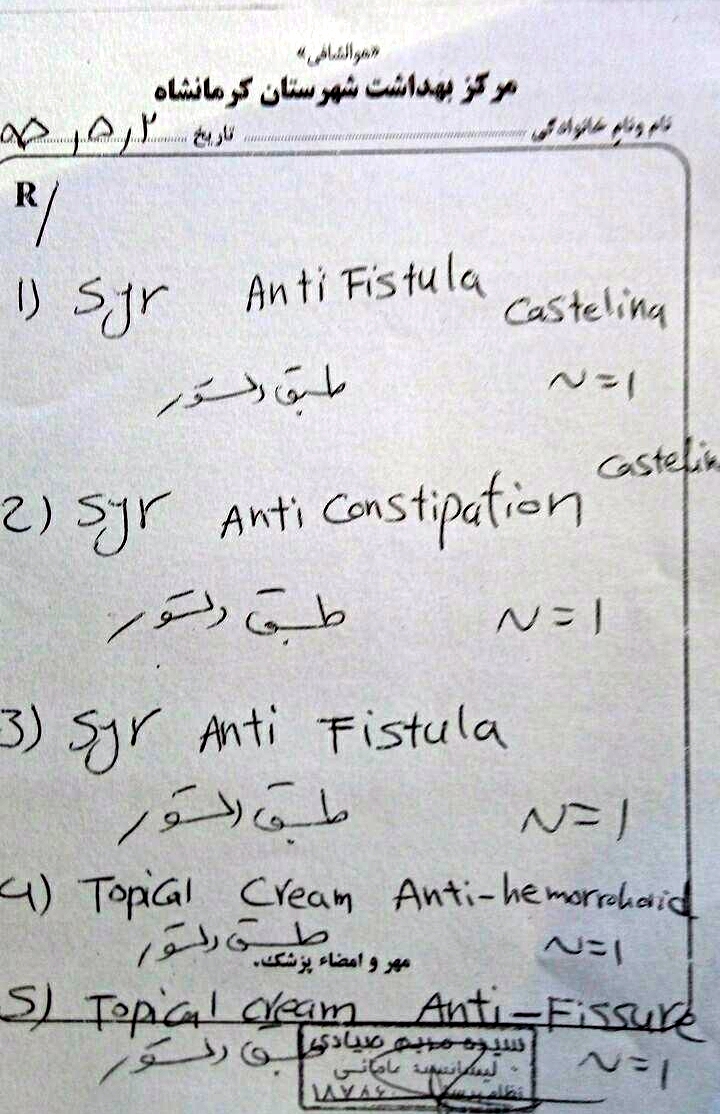 «هوالشافی»
مرکز بهداشت شهرستان کرمانشاه
نام ونام خانوادگی تاریخ
R/
1) Syr Anti Fistula Castelina
طبق دستور N=1
Castelin
2) Syr Anti Constipation
طبق دستور N=1
3) Syr Anti Fistula
طبق دستور N=1
4) Topical Cream Anti-hemorrohoid
طبق دستور N=1
مهر و امضاء پزشک.
5) Topical cream Anti-Fissure
طبق دستور N=1
سیده مریم صیادی
لیسانسیه مامائی